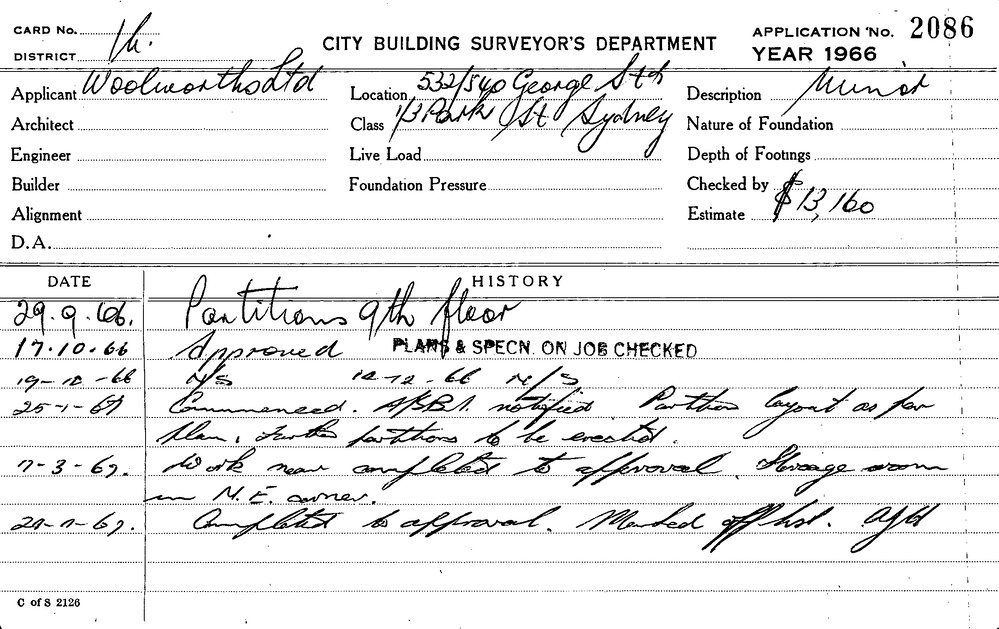 CARD No.
DISTRICT
CITY BUILDING SURVEYOR'S DEPARTMENT
APPLICATION No. 2086
YEAR 1966
Applicant Woolworths Ltd
Location 532/540 George St &
Description Minor
Architect
Class 1/3 Park St Sydney
Nature of Foundation
Engineer
Live Load
Depth of Footings
Builder
Foundation Pressure
Checked by
Alignment
Estimate $13,160
D.A.
DATE HISTORY
29.9.66. Partitions 9th floor
17.10.66 Approved PLANS & SPECN. ON JOB CHECKED
19-10-66 N/S 12-12-66 N/S
25-1-67 Commenced. notified. Partition layout as per
plan, further partitions to be erected.
7-3-67. Work near completed to approval. Storage room
in N.E. corner.
Completed to approval. Marked off list.
C of S 2126